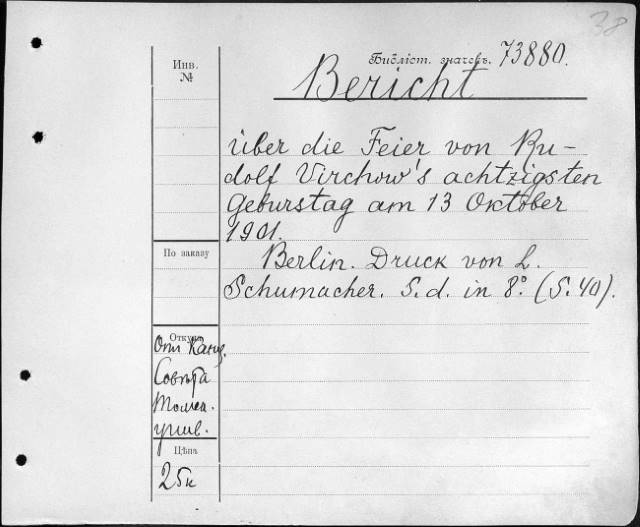 38
Инв.
№
Библіот. значекъ. 73880.
Bericht
über die Feier von Ru-
dolf Virchow's achtzigsten
Geburstag am 13 Oktober
1901.
По заказу
Berlin. Druck von L.
Schumacher. S.d. in 8° (S. 40).
Откуда
Отъ Канц.
Совѣта
Томск.
унив.
Цѣна
25к